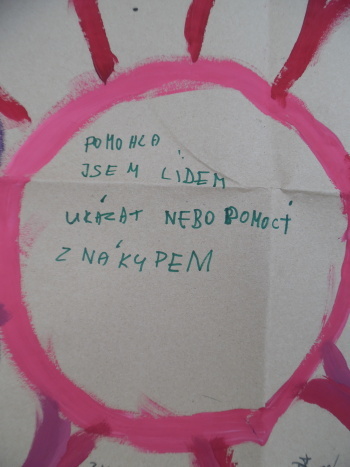 POMOHLA
JSEM LÍDEM
UKÁZAT NEBO POMOCÍ
Z NÁKYPEM